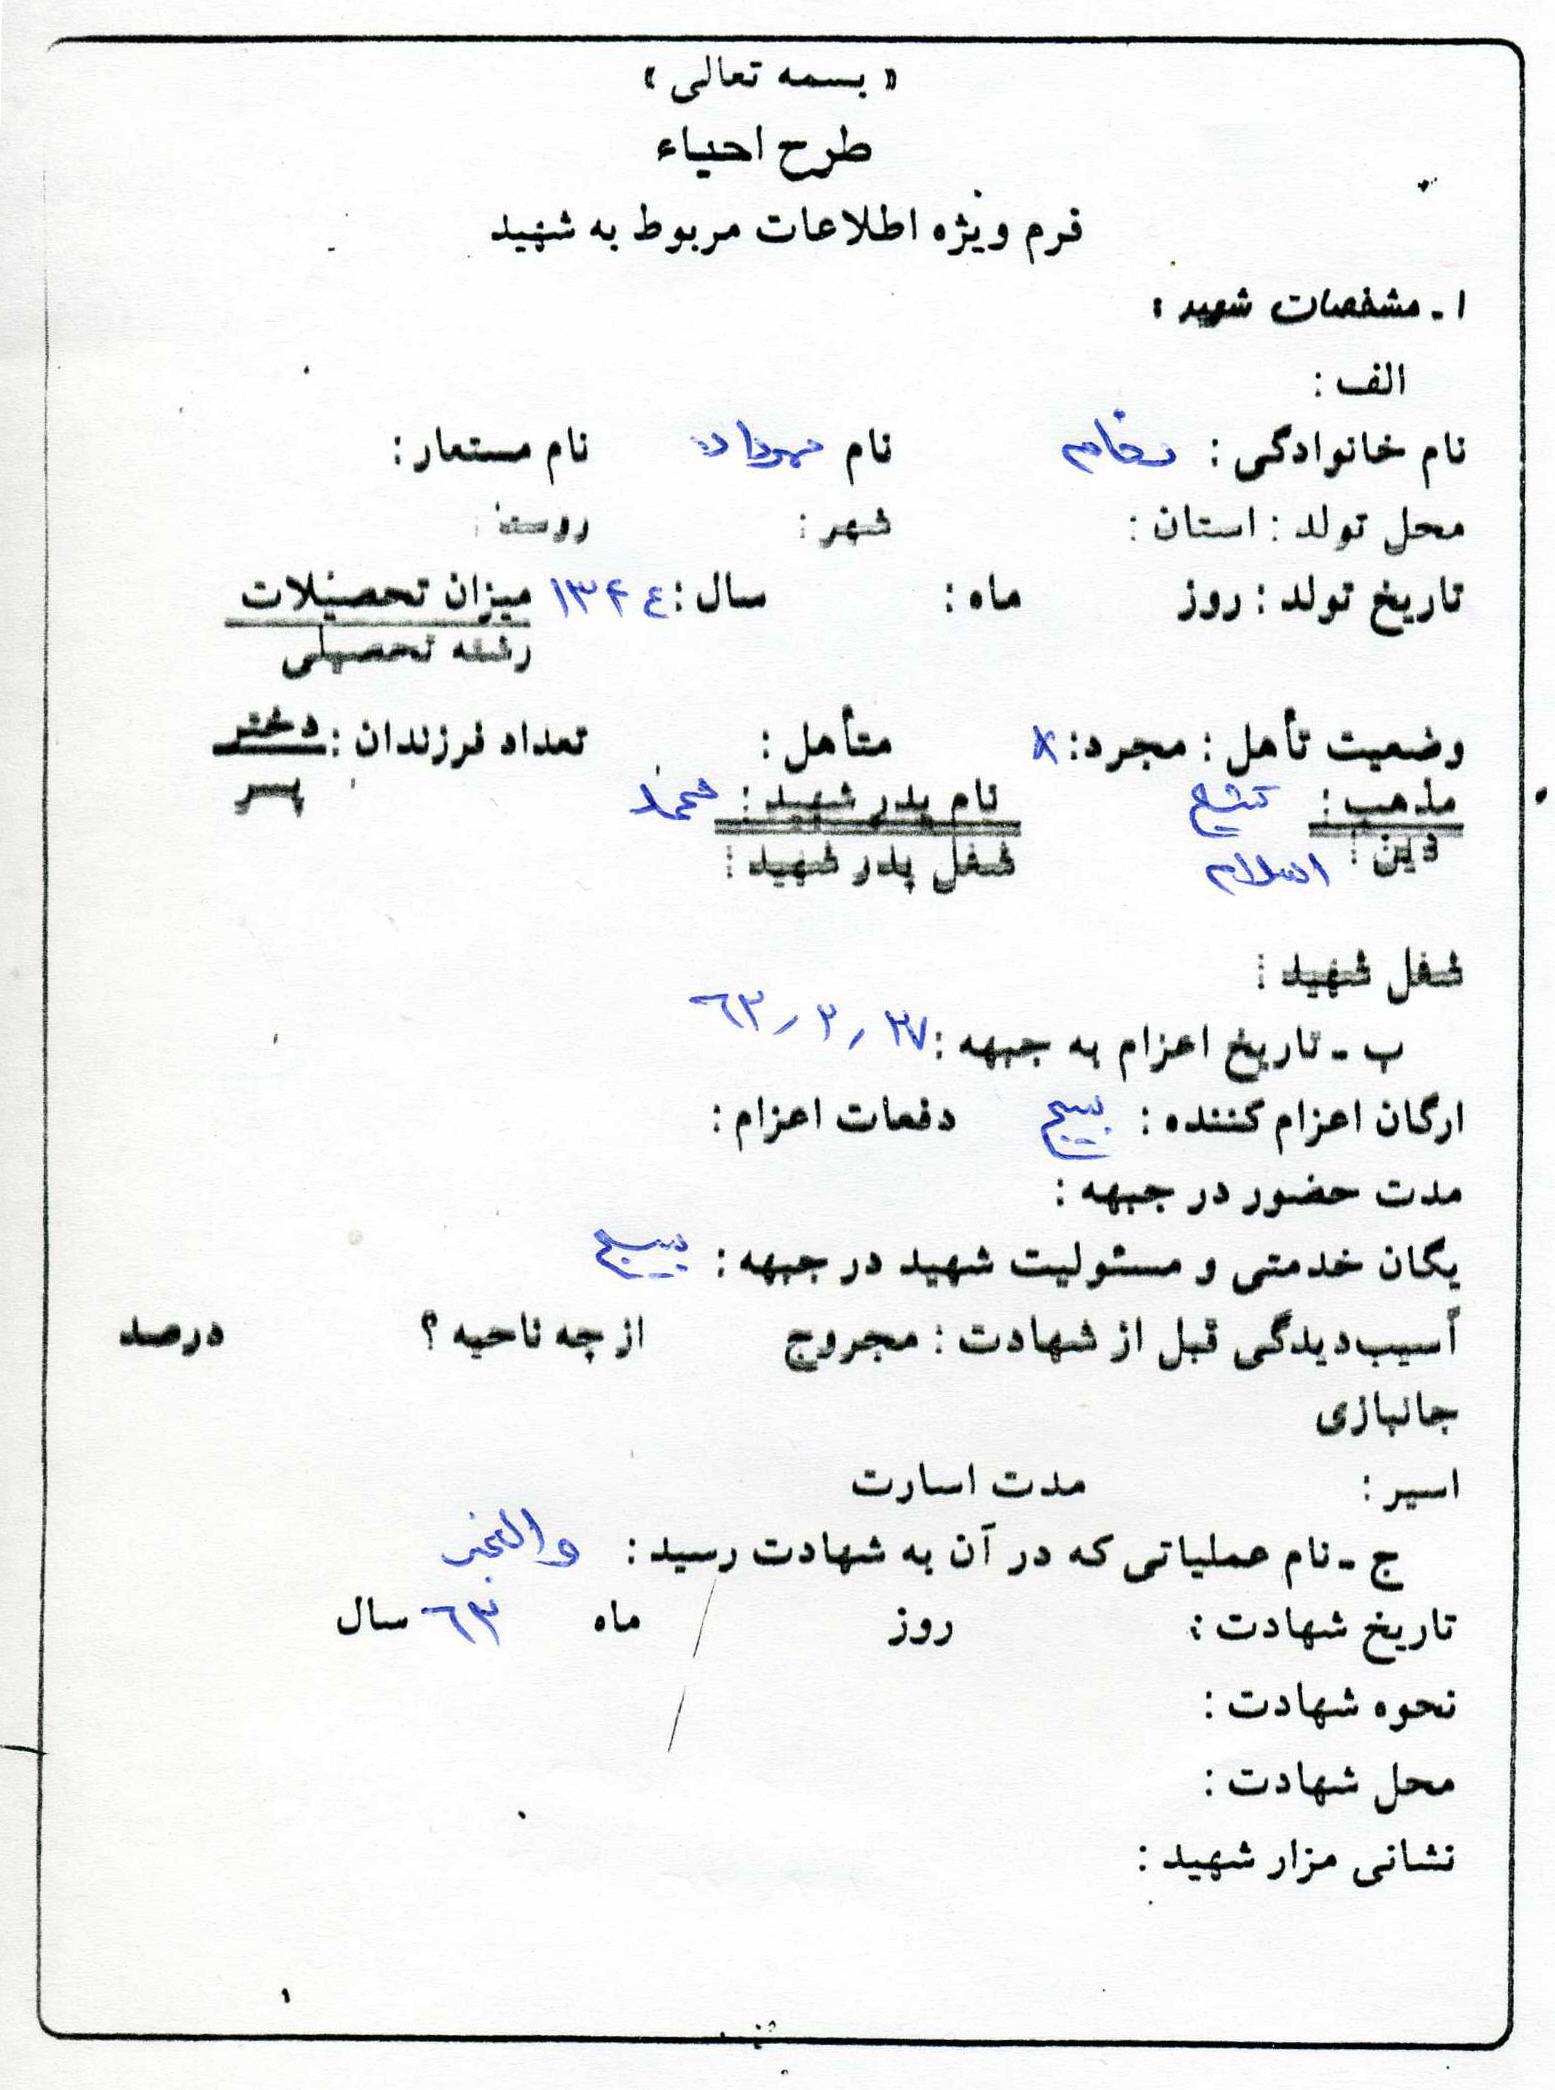 « بسمه تعالی »
طرح احیاء
فرم ویژه اطلاعات مربوط به شهید
۱ـ مشخصات شهید :
الف :
نام خانوادگی : نام مهرداد نام مستعار :
محل تولد : استان : شهر : روستا :
تاریخ تولد : روز ماه : سال : ۱۳۴۴ میزان تحصیلات
رشته تحصیلی
وضعیت تأهل : مجرد : x متأهل : تعداد فرزندان : دختر
مذهب : تشیع نام پدر شهید : محمد پسر
دین : اسلام شغل پدر شهید :
شغل شهید :
ب ـ تاریخ اعزام به جبهه : ۲۷ / ۳ / ۶۳
ارگان اعزام کننده : بسیج دفعات اعزام :
مدت حضور در جبهه :
یگان خدمتی و مسئولیت شهید در جبهه : بسیج
آسیب‌دیدگی قبل از شهادت : مجروح از چه ناحیه ؟ درصد
جانبازی
اسیر : مدت اسارت
ج ـ نام عملیاتی که در آن به شهادت رسید : والفجر
تاریخ شهادت : روز ماه ۶۳ سال
نحوه شهادت :
محل شهادت :
نشانی مزار شهید :
۱